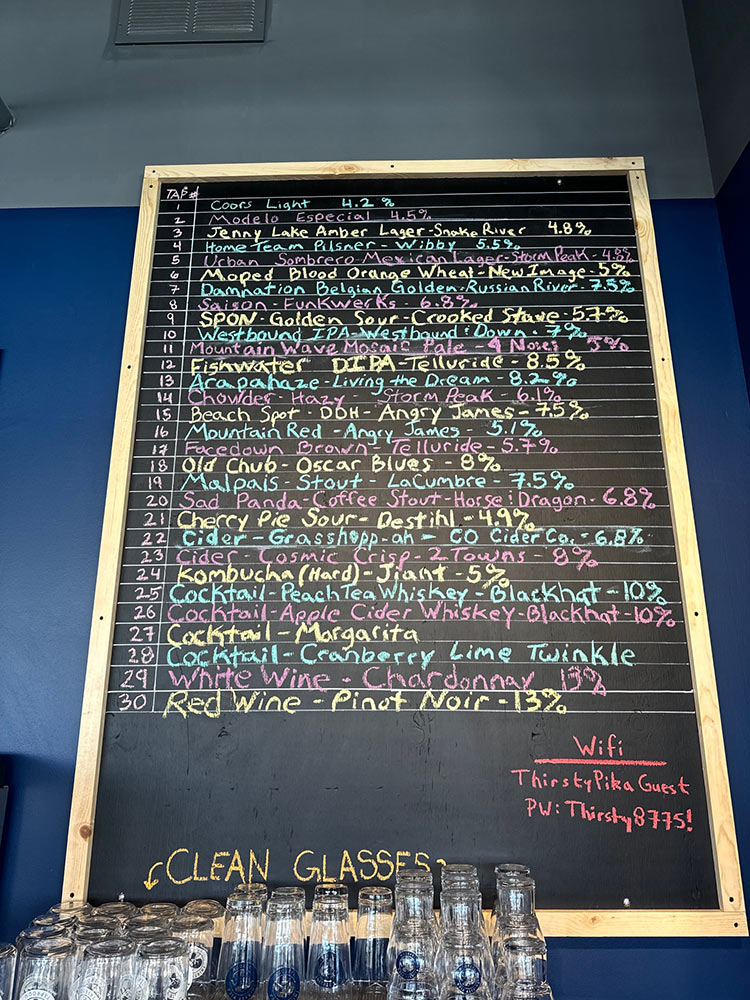 TAP #
1 Coors Light 4.2 %
2 Modelo Especial 4.5%
3 Jenny Lake Amber Lager-Snake River 4.8%
4 Home Team Pilsner - Wibby 5.5%
5 Urban Sombrero Mexican Lager-Storm Peak - 4.8%
6 Moped Blood Orange Wheat-New Image-5%
7 Damnation Belgian Golden-Russian River-7.5%
8 Saison - Funkwerks - 6.8%
9 SPON-Golden Sour-Crooked Stave-5.7%
10 Westbound IPA-Westbound & Down - 7%
11 Mountain Wave Mosaic Pale - 4 Noses 5%
12 Fishwater DIPA-Telluride - 8.5%
13 Arapahaze-Living the Dream - 8.2%
14 Chowder-Hazy - Storm Peak - 6.1%
15 Beach Spot - DDH - Angry James - 7.5%
16 Mountain Red - Angry James - 5.1%
17 Facedown Brown - Telluride - 5.7%
18 Old Chub - Oscar Blues - 8%
19 Malpais - Stout - LaCumbre - 7.5%
20 Sad Panda-Coffee Stout-Horse & Dragon - 6.8%
21 Cherry Pie Sour - Destihl - 4.9%
22 Cider - Grasshopp-ah - CO Cider Co. -
23 Cider - Cosmic Crisp - 2 Towns - 8%
24 Kombucha (Hard) - Jiant - 5%
25 Cocktail-Peach Tea Whiskey - Blackhat - 10%
26 Cocktail-Apple Cider Whiskey-Blackhat-10%
27 Cocktail - Margarita
28 Cocktail - Cranberry Lime Twinkle
29 White Wine - Chardonnay 13%
30 Red Wine - Pinot Noir - 13%
Wifi
ThirstyPika Guest
PW: Thirsty8775!
CLEAN GLASSES